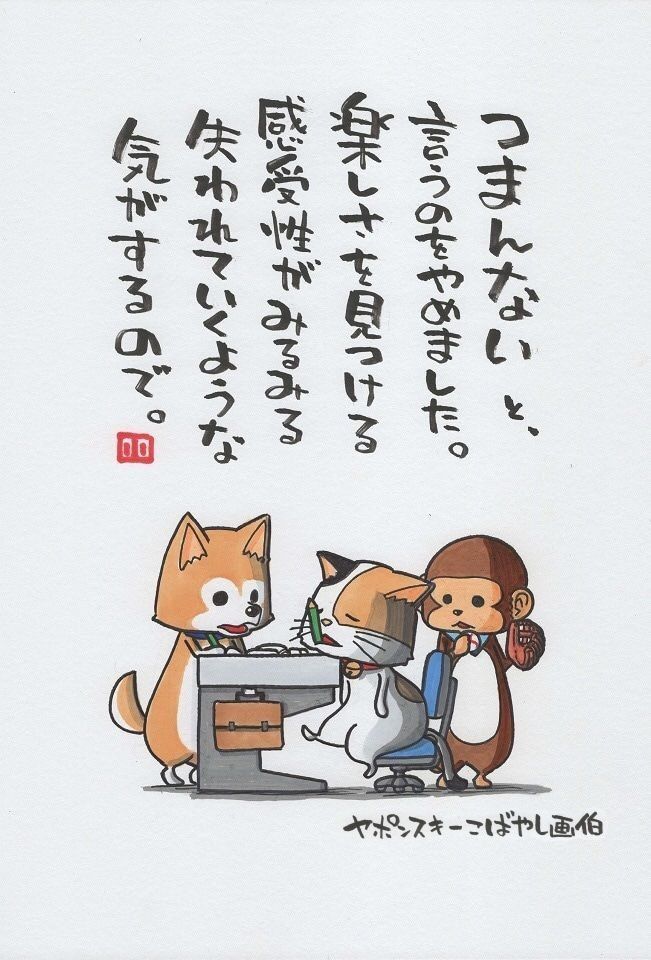 つまんないと、
言うのをやめました。
楽しさを見つける
感受性がみるみる
失われていくような
気がするので。
ヤポンスキーこばやし画伯